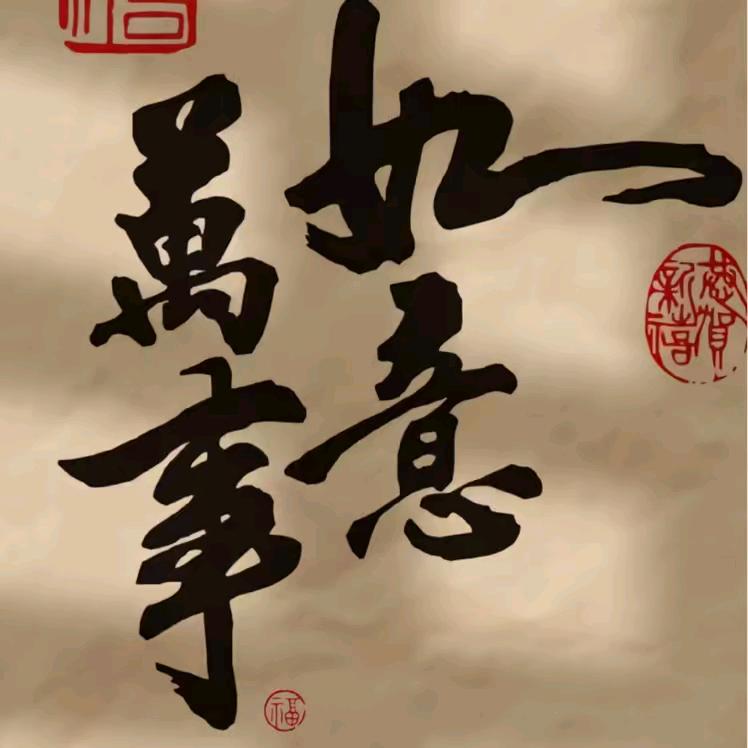 萬事
如意
恭賀
新禧
福